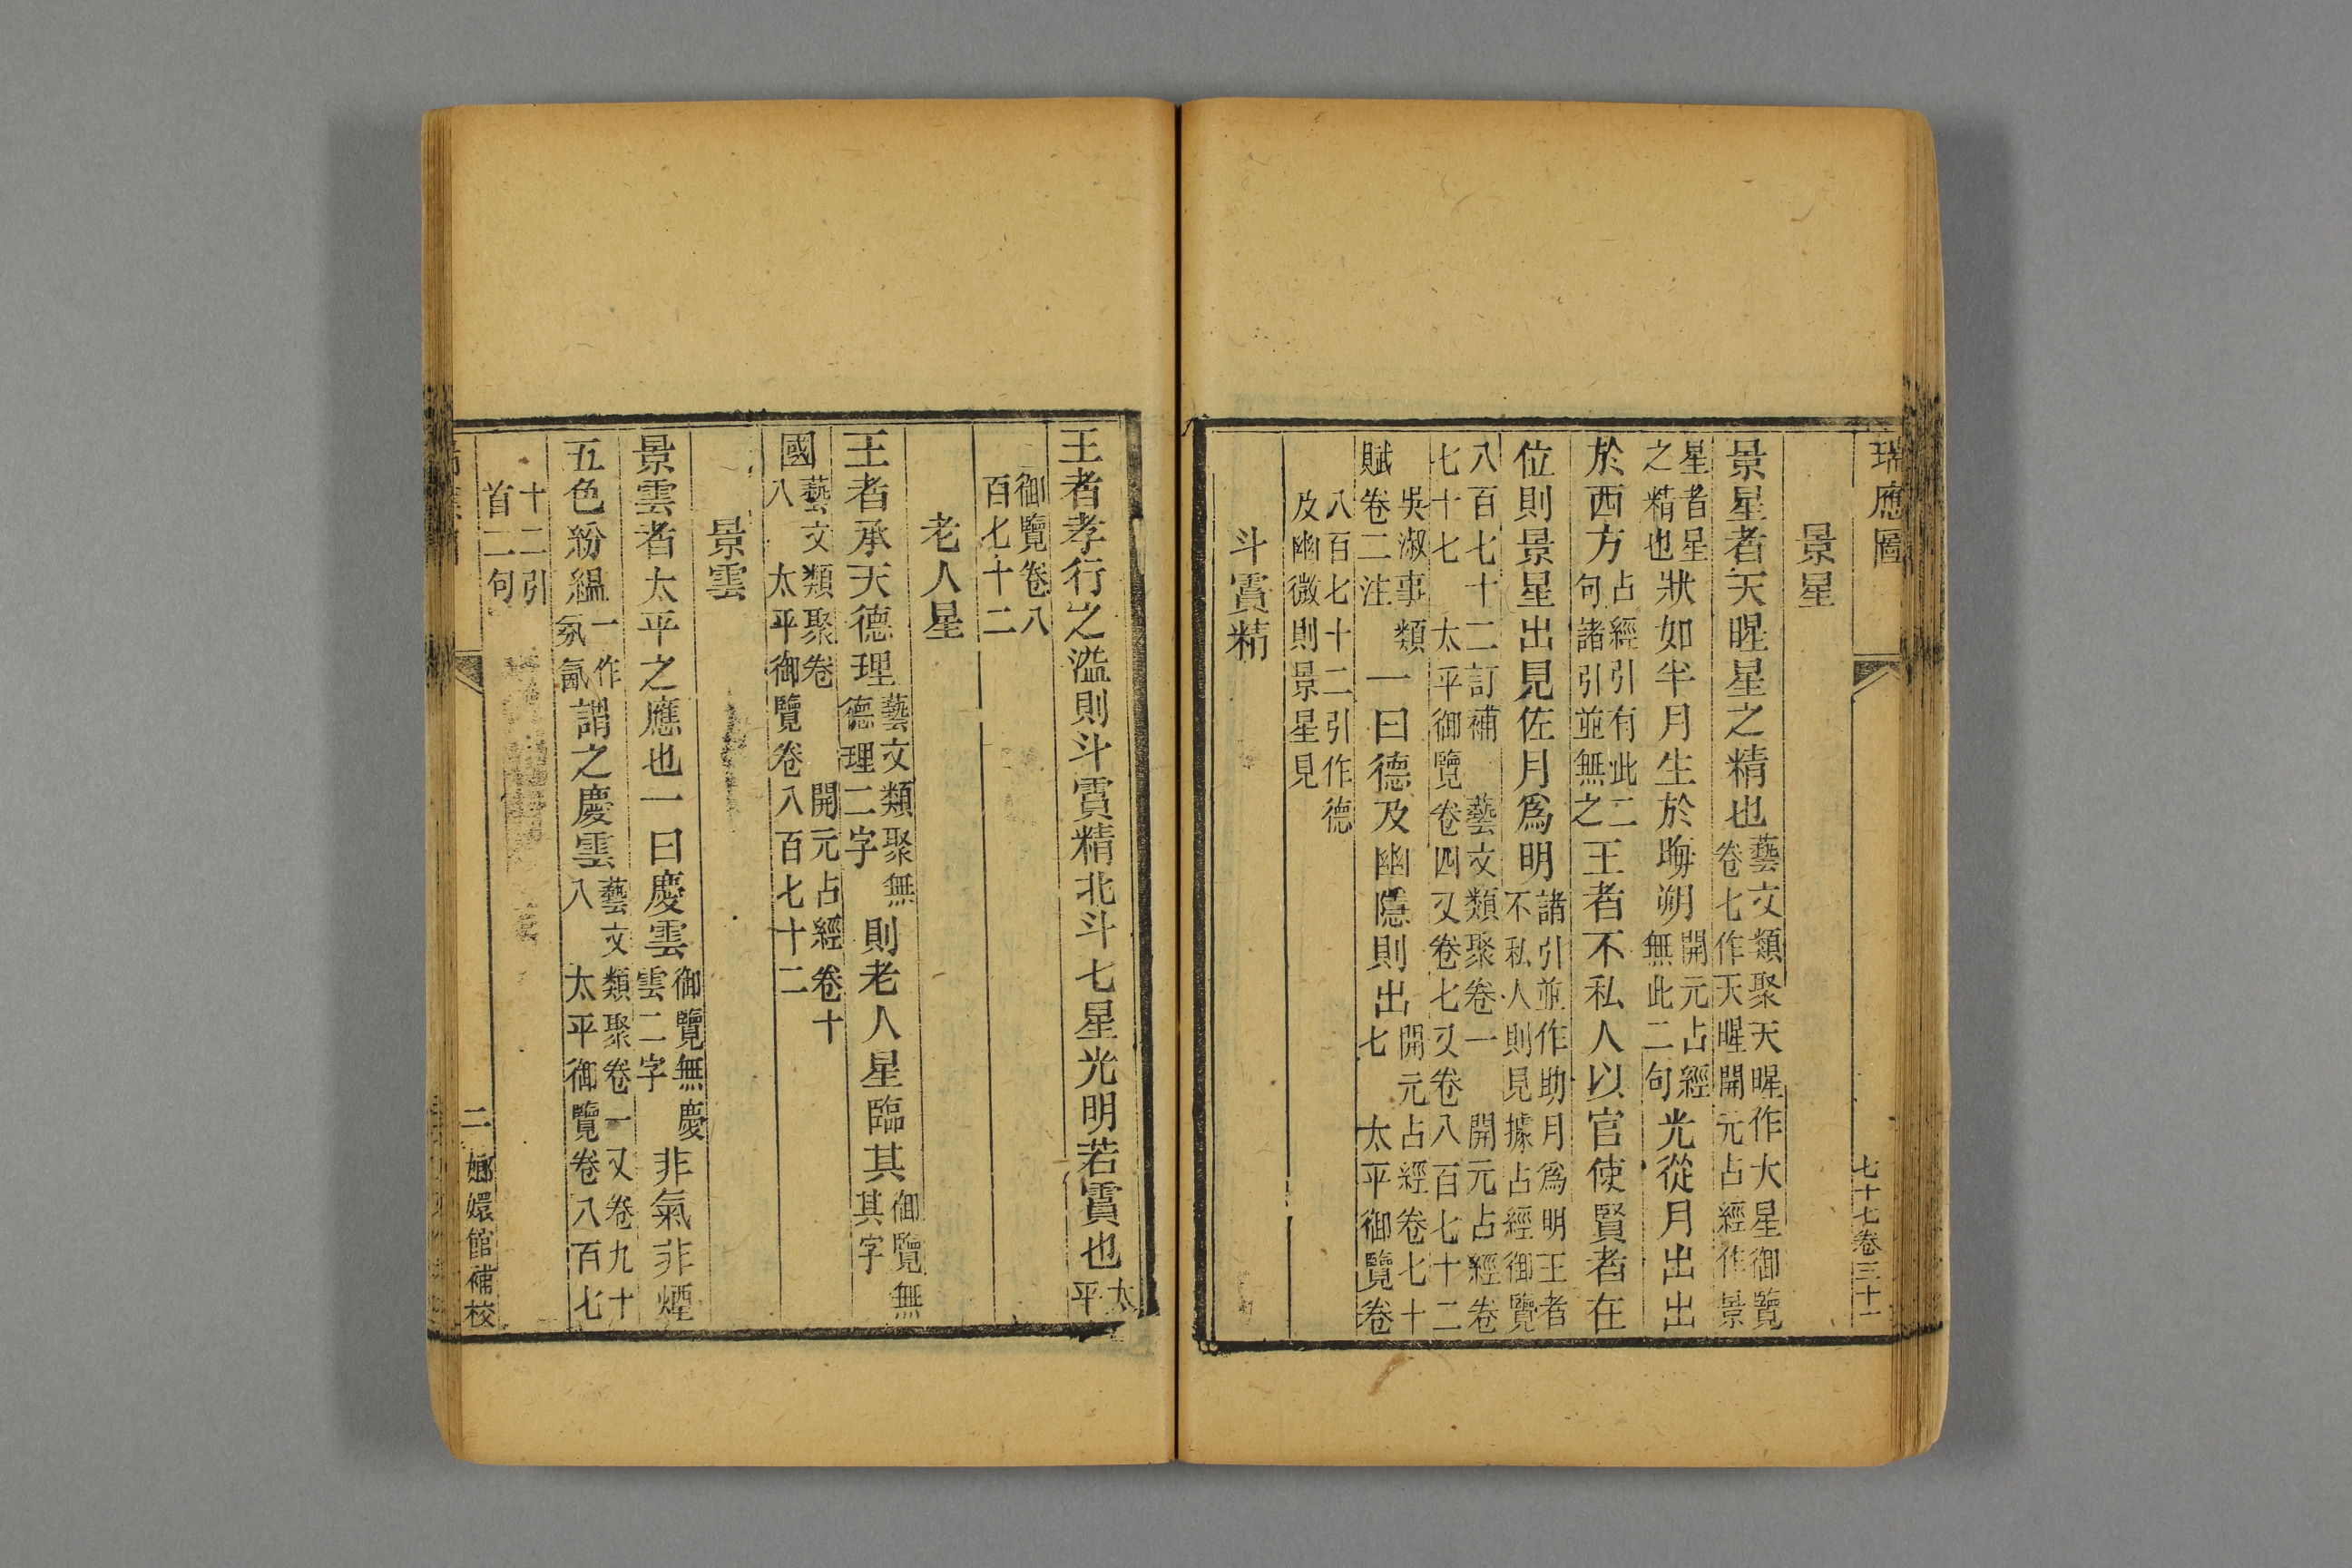 瑞應圖
七十七卷三十一
景星
景星者天晠星之精也藝文類聚天晠作大星御覽卷七作天晠開元占經作景
星者星之精也狀如半月生於晦朔開元占經無此二句光從月出出
於西方占經引有此二句諸引並無之王者不私人以官使賢者在
位則景星出見佐月爲明諸引並作助月爲明王者不私人則見據占經御覽
八百七十二訂補 藝文類聚卷一 開元占經卷七十七 太平御覽卷四又卷七又卷八百七十二
吳淑事類賦卷二注一曰德及幽隱則出開元占經卷七十七 太平御覽卷
八百七十二引作德及幽微則景星見
斗霣精
王者孝行之溢則斗霣精北斗七星光明若霣也太平
御覽卷八百七十二
老人星
王者承天德理藝文類聚無德理二字則老人星臨其御覽無其字
國藝文類聚卷八 開元占經卷十 太平御覽卷八百七十二
景雲
景雲者太平之應也一曰慶雲御覽無慶雲二字非氣非煙
五色紛緼一作氛氳謂之慶雲藝文類聚卷一又卷九十八 太平御覽卷八百七
十二引首二句
二
嫏嬛館補校